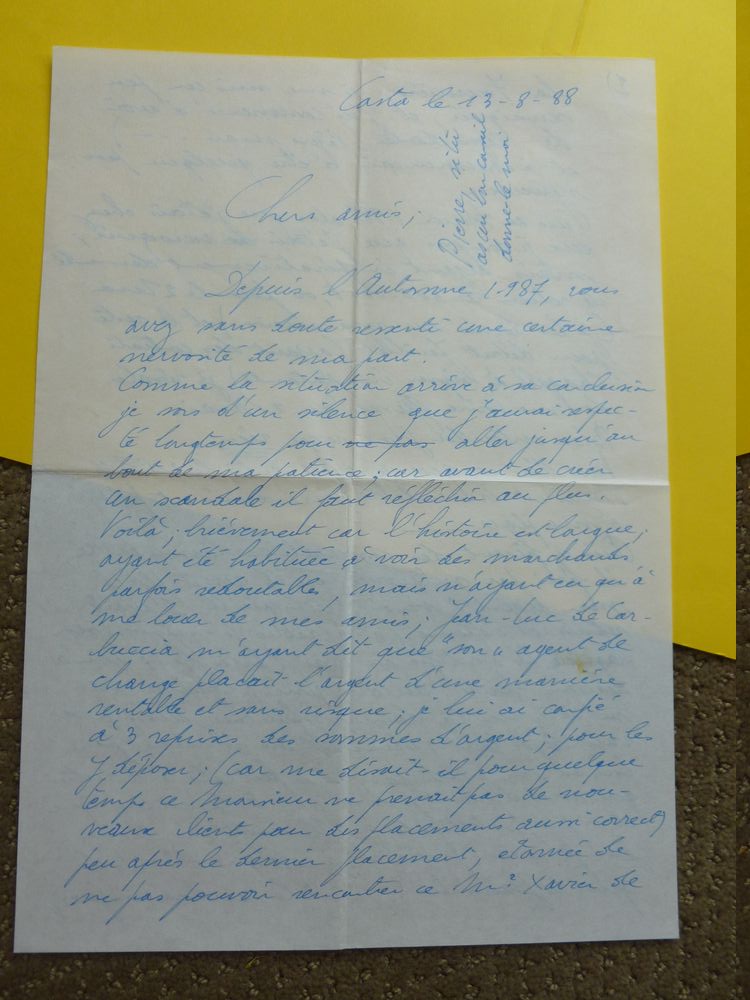 Casta le 13-8-88
Pierre, si tu
as un bon conseil
donne-le moi
Chers amis,
Depuis l'Automne 1987, vous
avez sans doute ressenti une certaine
nervosité de ma part.
Comme la situation arrive à sa conclusion
je sors d'un silence que j'aurai respec-
té longtemps pour ne pas aller jusqu'au
bout de ma patience; car avant de créer
un scandale il faut réfléchir au plus.
Voilà; brièvement car l'histoire est longue;
ayant été habituée à voir des marchands
parfois redoutables, mais n'ayant eu qu'à
me louer de mes amis; Jean-Luc de Car-
buccia m'ayant dit que "son" agent de
change plaçait l'argent d'une manière
rentable et sans risque; je lui ai confié
à 3 reprises des sommes d'argent; pour les
y déposer; (car me disait-il pour quelque
temps ce Monsieur ne prenait pas de nou-
veaux clients pour des placements aussi corrects)
peu après le dernier placement, étonnée de
ne pas pouvoir rencontrer ce Mr Xavier de